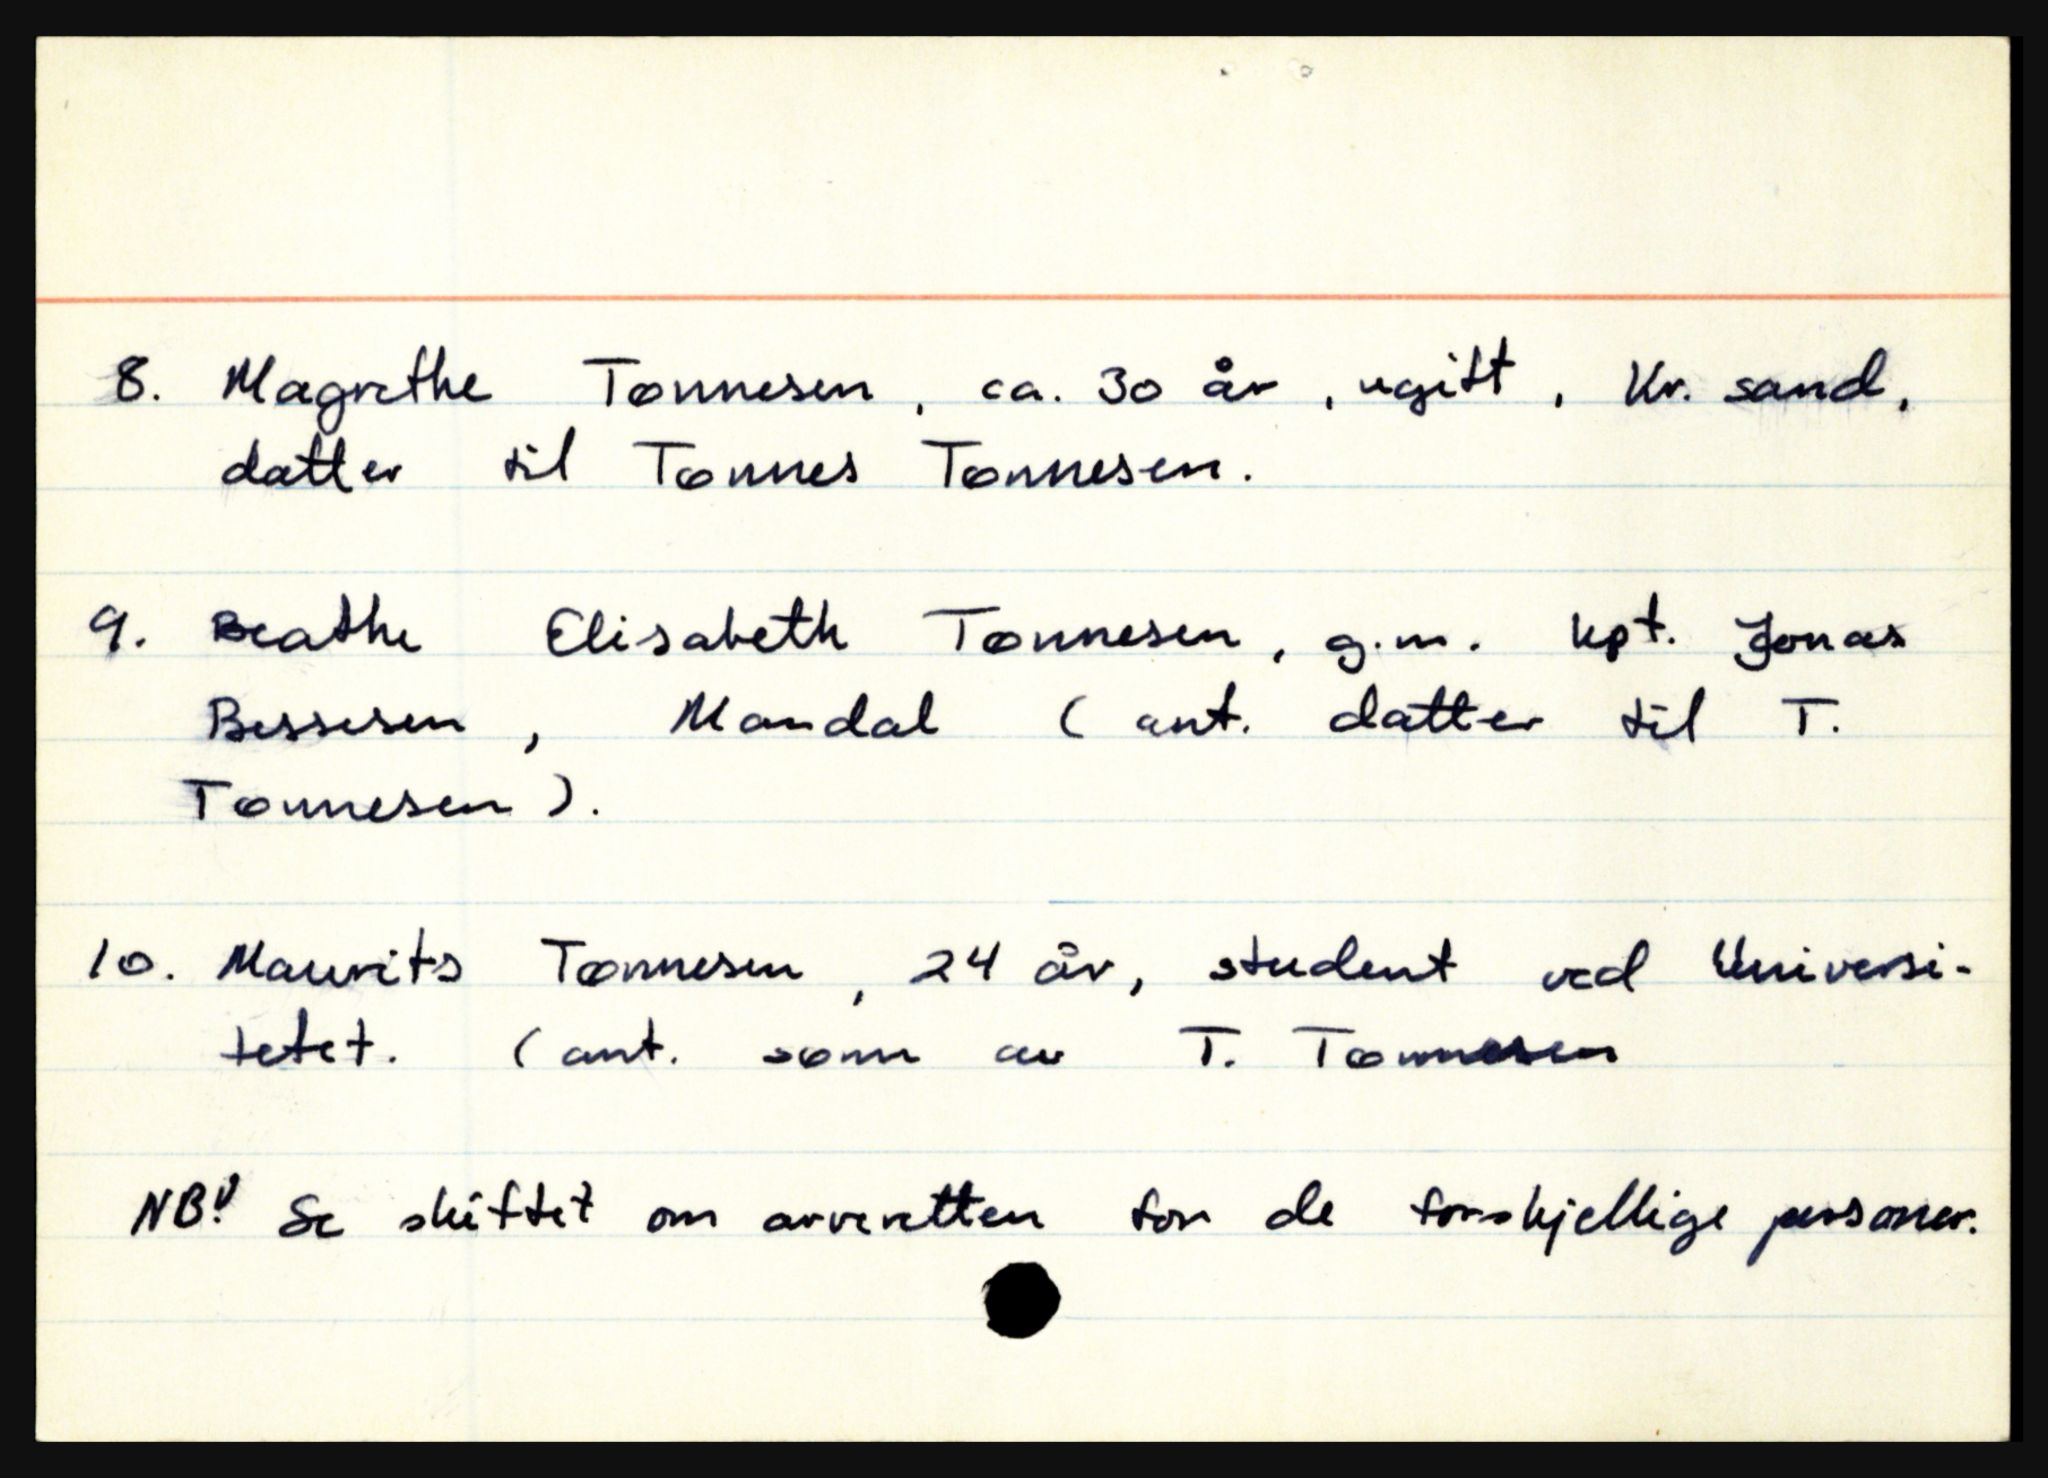 8. Magrethe Tønnesen, ca. 30 år, ugift, Kr. sand,
datter til Tønnes Tønnesen.
9. Beathe Elisabeth Tønnesen, g.m. kpt. Jonas
Bessesen, Mandal (ant. datter til T.
Tønnesen).
10. Maurits Tønnesen, 24 år, student ved Universi-
tetet. (ant. sønn av T. Tønnesen
NB! Se skiftet om arveretten for de forskjellige personer.